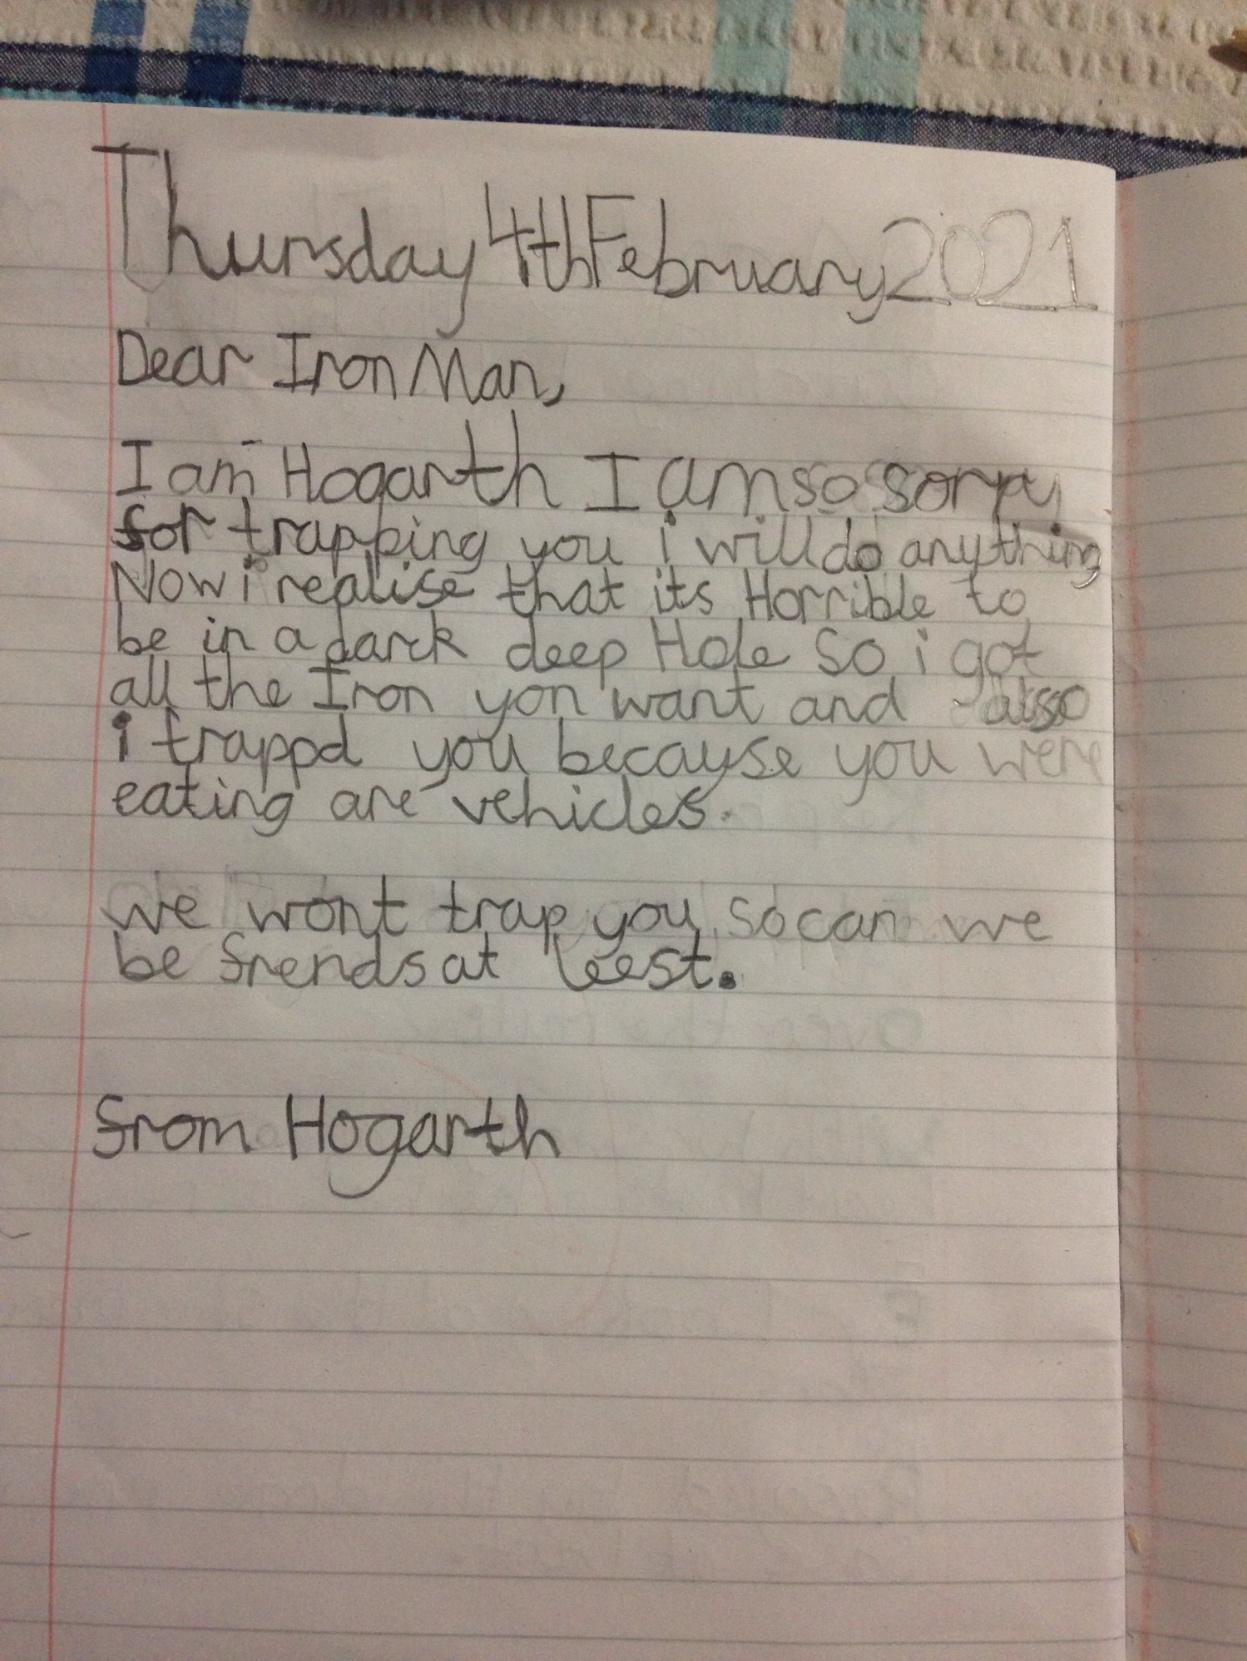 Thursday 4th February 2021
Dear Iron Man,
I am Hogarth I am so sorry
for trapping you i will do anything
Now i realise that its Horrible to
be in a darck deep Hole So i got
all the Iron yon want and also
i trappd you becayse you were
eating are vehicles.
we wont trap you so can we
be frends at leest.
from Hogarth